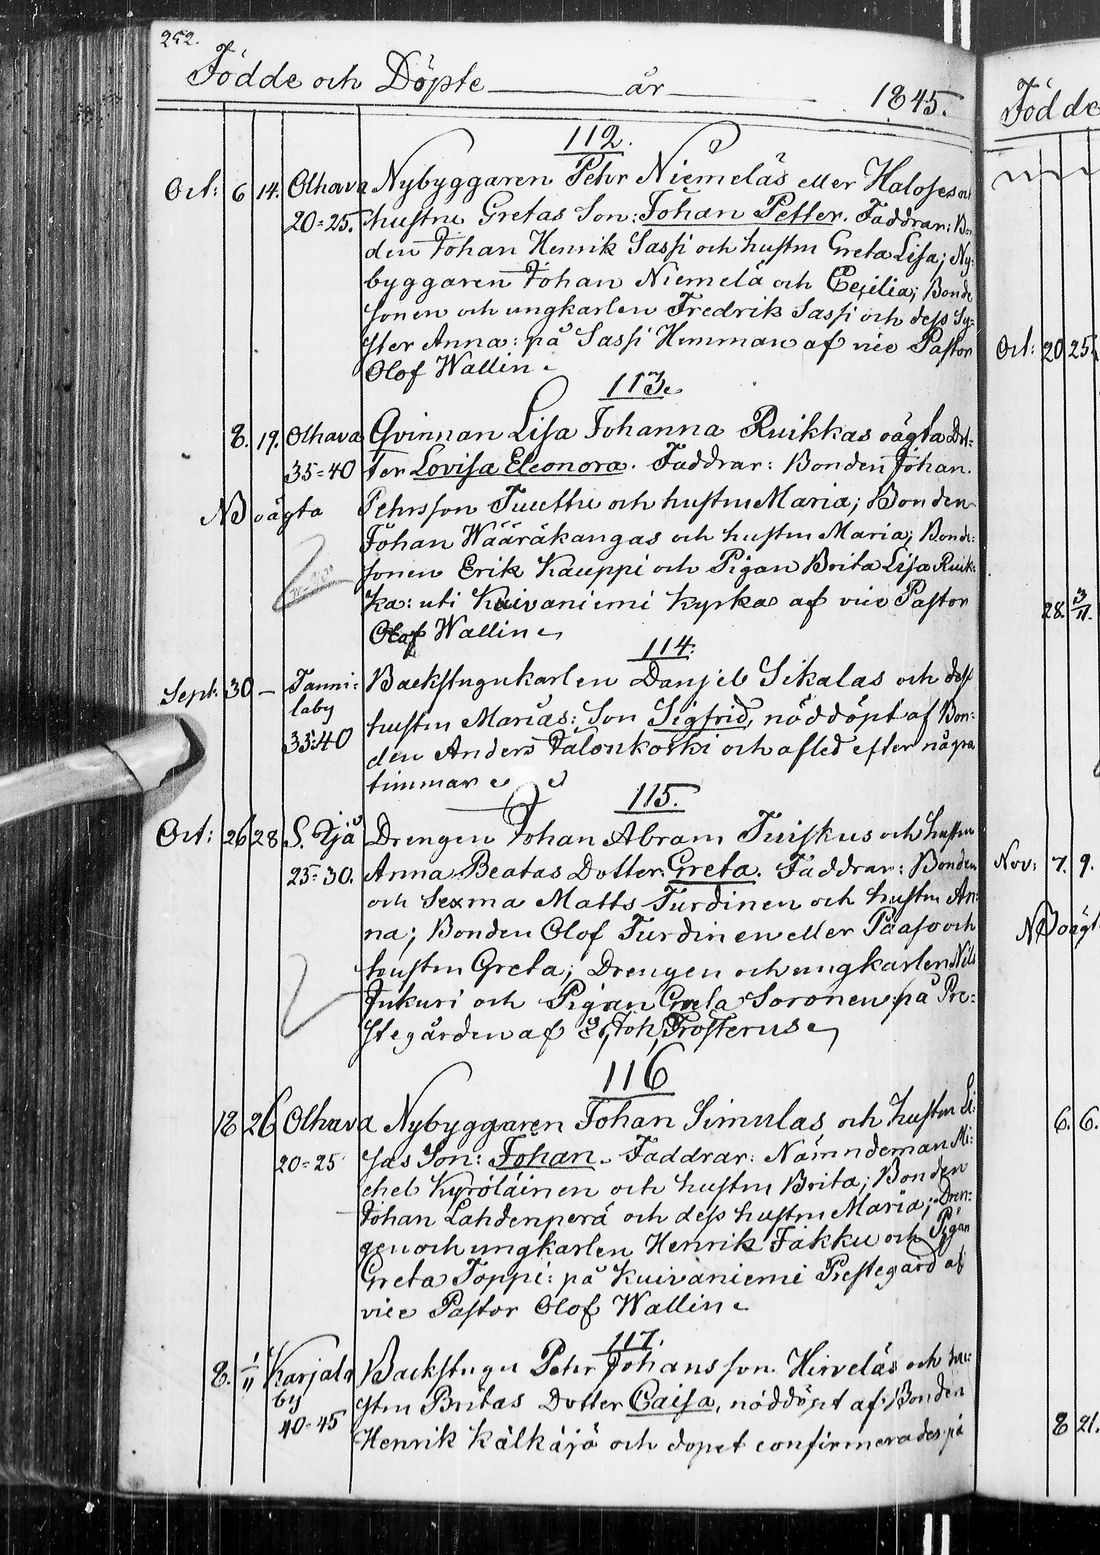 252.
Födde och Döpte år 1845.
112.
Oct: 6 14. Olhava Nybyggaren Pehr Niemeläs eller Haloses och
20=25. hustru Gretas Son: Johan Petter. Faddrar: Bon
den Johan Henrik Sassi och hustru Greta Lisa; Ny=
byggaren Johan Niemelä och Cecilia; Bonde
sonen och ungkarlen Fredrik Sassi och dess Sy=
ster Anna: på Sassi Hemman af vice Pastor
Olof Wallin
113.
8. 19. Olhava Qvinnan Lisa Johanna Ruikkas oägta Dot=
35=40 ter Lovisa Eleonora. Faddrar: Bonden Johan
NB oägta Pehrsson Tuuttu och hustru Maria; Bonden
Johan Wääräkangas och hustru Maria; Bonde=
sonen Erik Kauppi och Pigan Brita Lisa Ruik=
ka: uti Kuivaniemi Kyrka af vice Pastor
Olof Wallin
114.
Sept. 30 – Tanni= Backstugukarlen Danjel Sikalas och dess
laby hustru Marias: Son Sigfrid, nöddöpt af Bon=
35=40 den Anders Jalonkoski och afled efter några
timmar
115.
Oct: 26 28 S. Ijå Drengen Johan Abram Tuiskus och hustru
25=30. Anna Beatas Dotter Greta. Faddrar: Bonden
och Sexma Matts Turdinen och hustru An=
na; Bonden Olof Turdinen eller Paaso och
hustru Greta; Drengen och ungkarlen Nils
Jukuri och Pigan Greta Soronen: på Pre=
stegården af Er, Joh, Frosterus
116
18 26 Olhava Nybyggaren Johan Simulas och hustru Li=
20=25 sas Son: Johan. Faddrar: Nämndeman Mi=
chel Kyröläinen och hustru Brita; Bonden
Johan Lahdenperä och dess hustru Maria; Dren=
gen och ungkarlen Henrik Jakku och Pigan
Greta Toppi: på Kuivaniemi Prestegård af
vice Pastor Olof Wallin
117.
8. 1/11 Karjala Backstugu Pehr Johansson Hirveläs och hu=
by stru Britas Dotter Caisa, nöddöpt af Bonden
40=45 Henrik Kälkäjä och dopet confirmerades på
Födde
Oct: 20 25
28. 3/11.
Nov: 7. 9.
NB oägt
6. 6.
8 21.